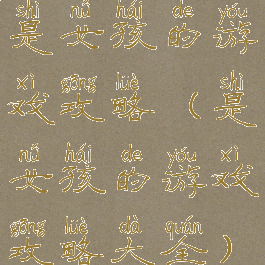 shì nǚ hái de yóu
是女孩的游
xì gōng lüè shì
戏攻略（是
nǚ hái de yóu xì
女孩的游戏
gōng lüè dà quán
攻略大全）